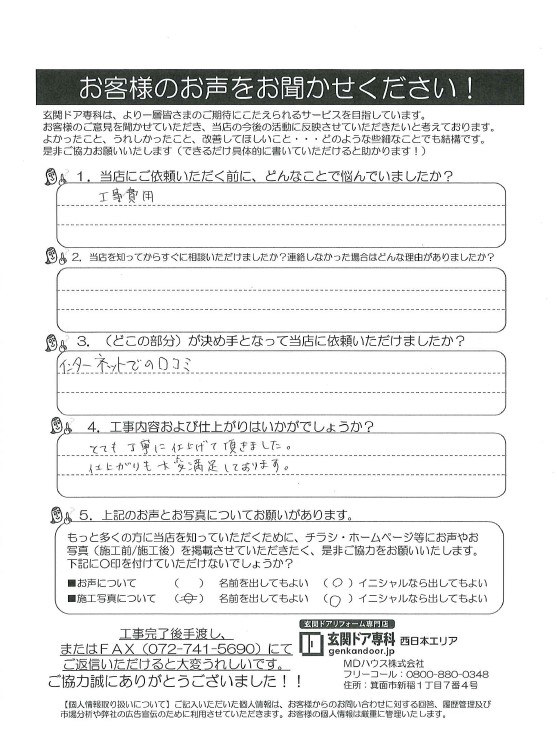 お客様のお声をお聞かせください！
玄関ドア専科は、より一層皆さまのご期待にこたえられるサービスを目指しています。
お客様のご意見を聞かせていただき、当店の今後の活動に反映させていただきたいと考えております。
よかったこと、うれしかったこと、改善してほしいこと・・・どのような些細なことでも結構です。
是非ご協力お願いいたします（できるだけ具体的に書いていただけると助かります！）
1．当店にご依頼いただく前に、どんなことで悩んでいましたか？
工事費用
2．当店を知ってからすぐに相談いただけましたか？連絡しなかった場合はどんな理由がありましたか？
3．（どこの部分）が決め手となって当店に依頼いただけましたか？
インターネットでの口コミ
4．工事内容および仕上がりはいかがでしょうか？
とても丁寧に仕上げて頂きました。
仕上がりも大変満足しております。
5．上記のお声とお写真についてお願いがあります。
もっと多くの方に当店を知っていただくために、チラシ・ホームページ等にお声やお
写真（施工前/施工後）を掲載させていただきたく、是非ご協力をお願いいたします。
下記に〇印を付けていただけないでしょうか？
■お声について （ ） 名前を出してもよい （○）イニシャルなら出してもよい
■施工写真について （○） 名前を出してもよい （○）イニシャルなら出してもよい
工事完了後手渡し、
またはＦＡＸ（072-741-5690）にて
ご返信いただけると大変うれしいです。
ご協力誠にありがとうございました！！
玄関ドアリフォーム専門店
玄関ドア専科 西日本エリア
genkandoor.jp
MDハウス株式会社
フリーコール：0800-880-0348
住所：箕面市新稲1丁目7番4号
【個人情報取り扱いについて】ご記入いただいた個人情報は、お客様からのお問い合わせに対する回答、履歴管理及び
市場分析や弊社の広告宣伝のために利用させていただきます。お客様の個人情報は厳重に管理いたします。